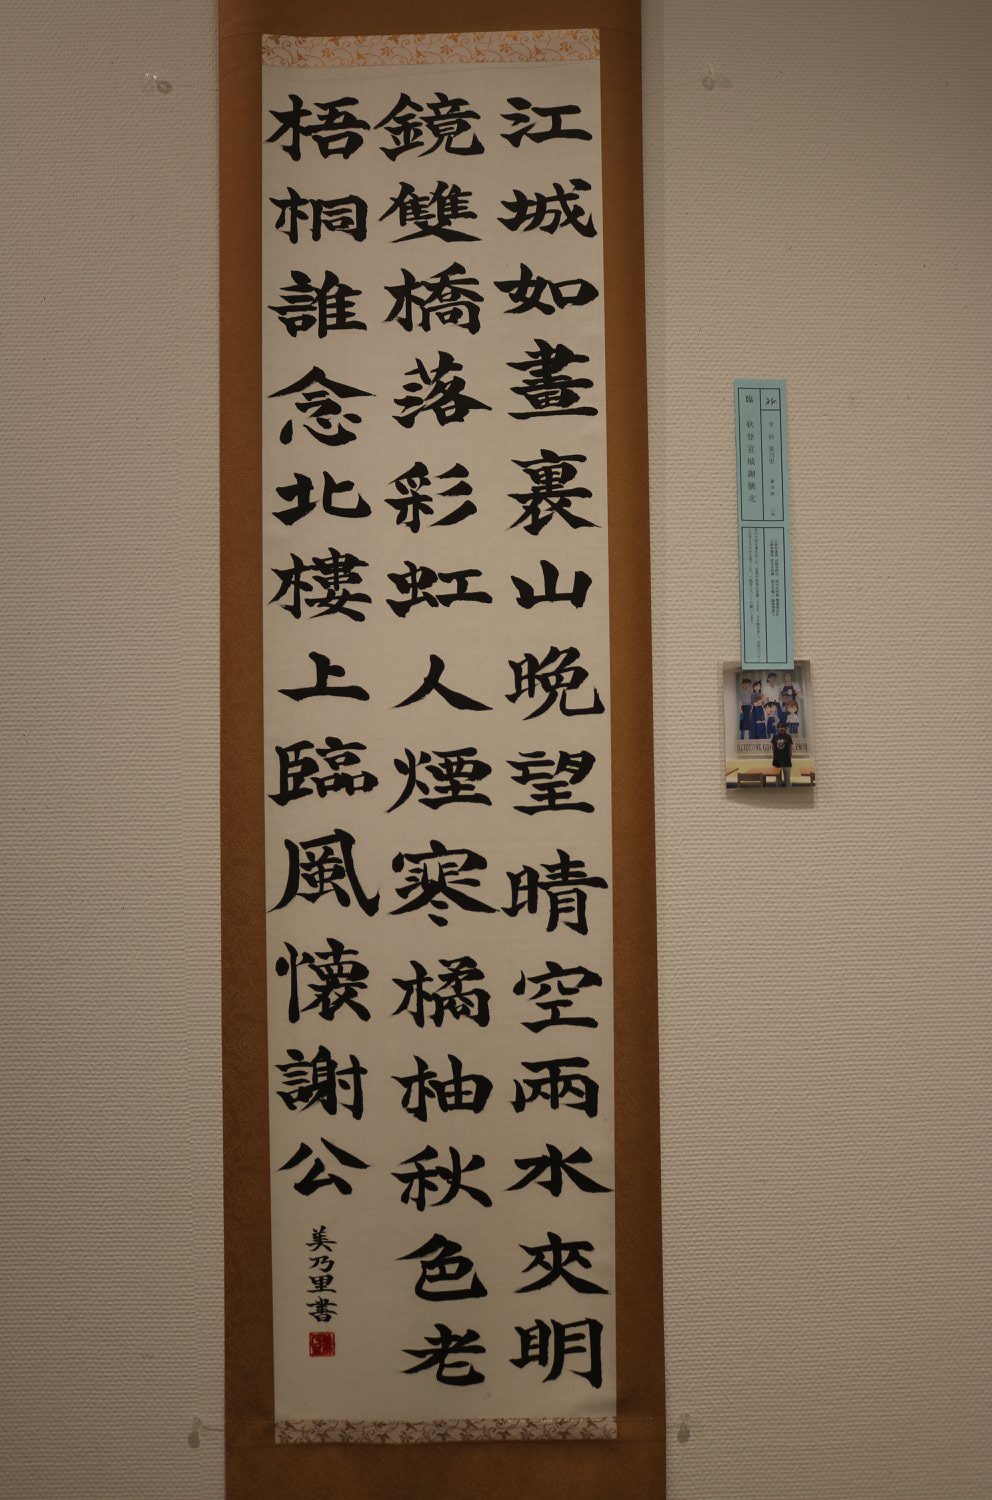 江城如畫裏山晩望晴空兩水夾明
鏡雙橋落彩虹人煙寒橘柚秋色老
梧桐誰念北樓上臨風懷謝公
美乃里書
34
臨 秋登宣城謝朓北